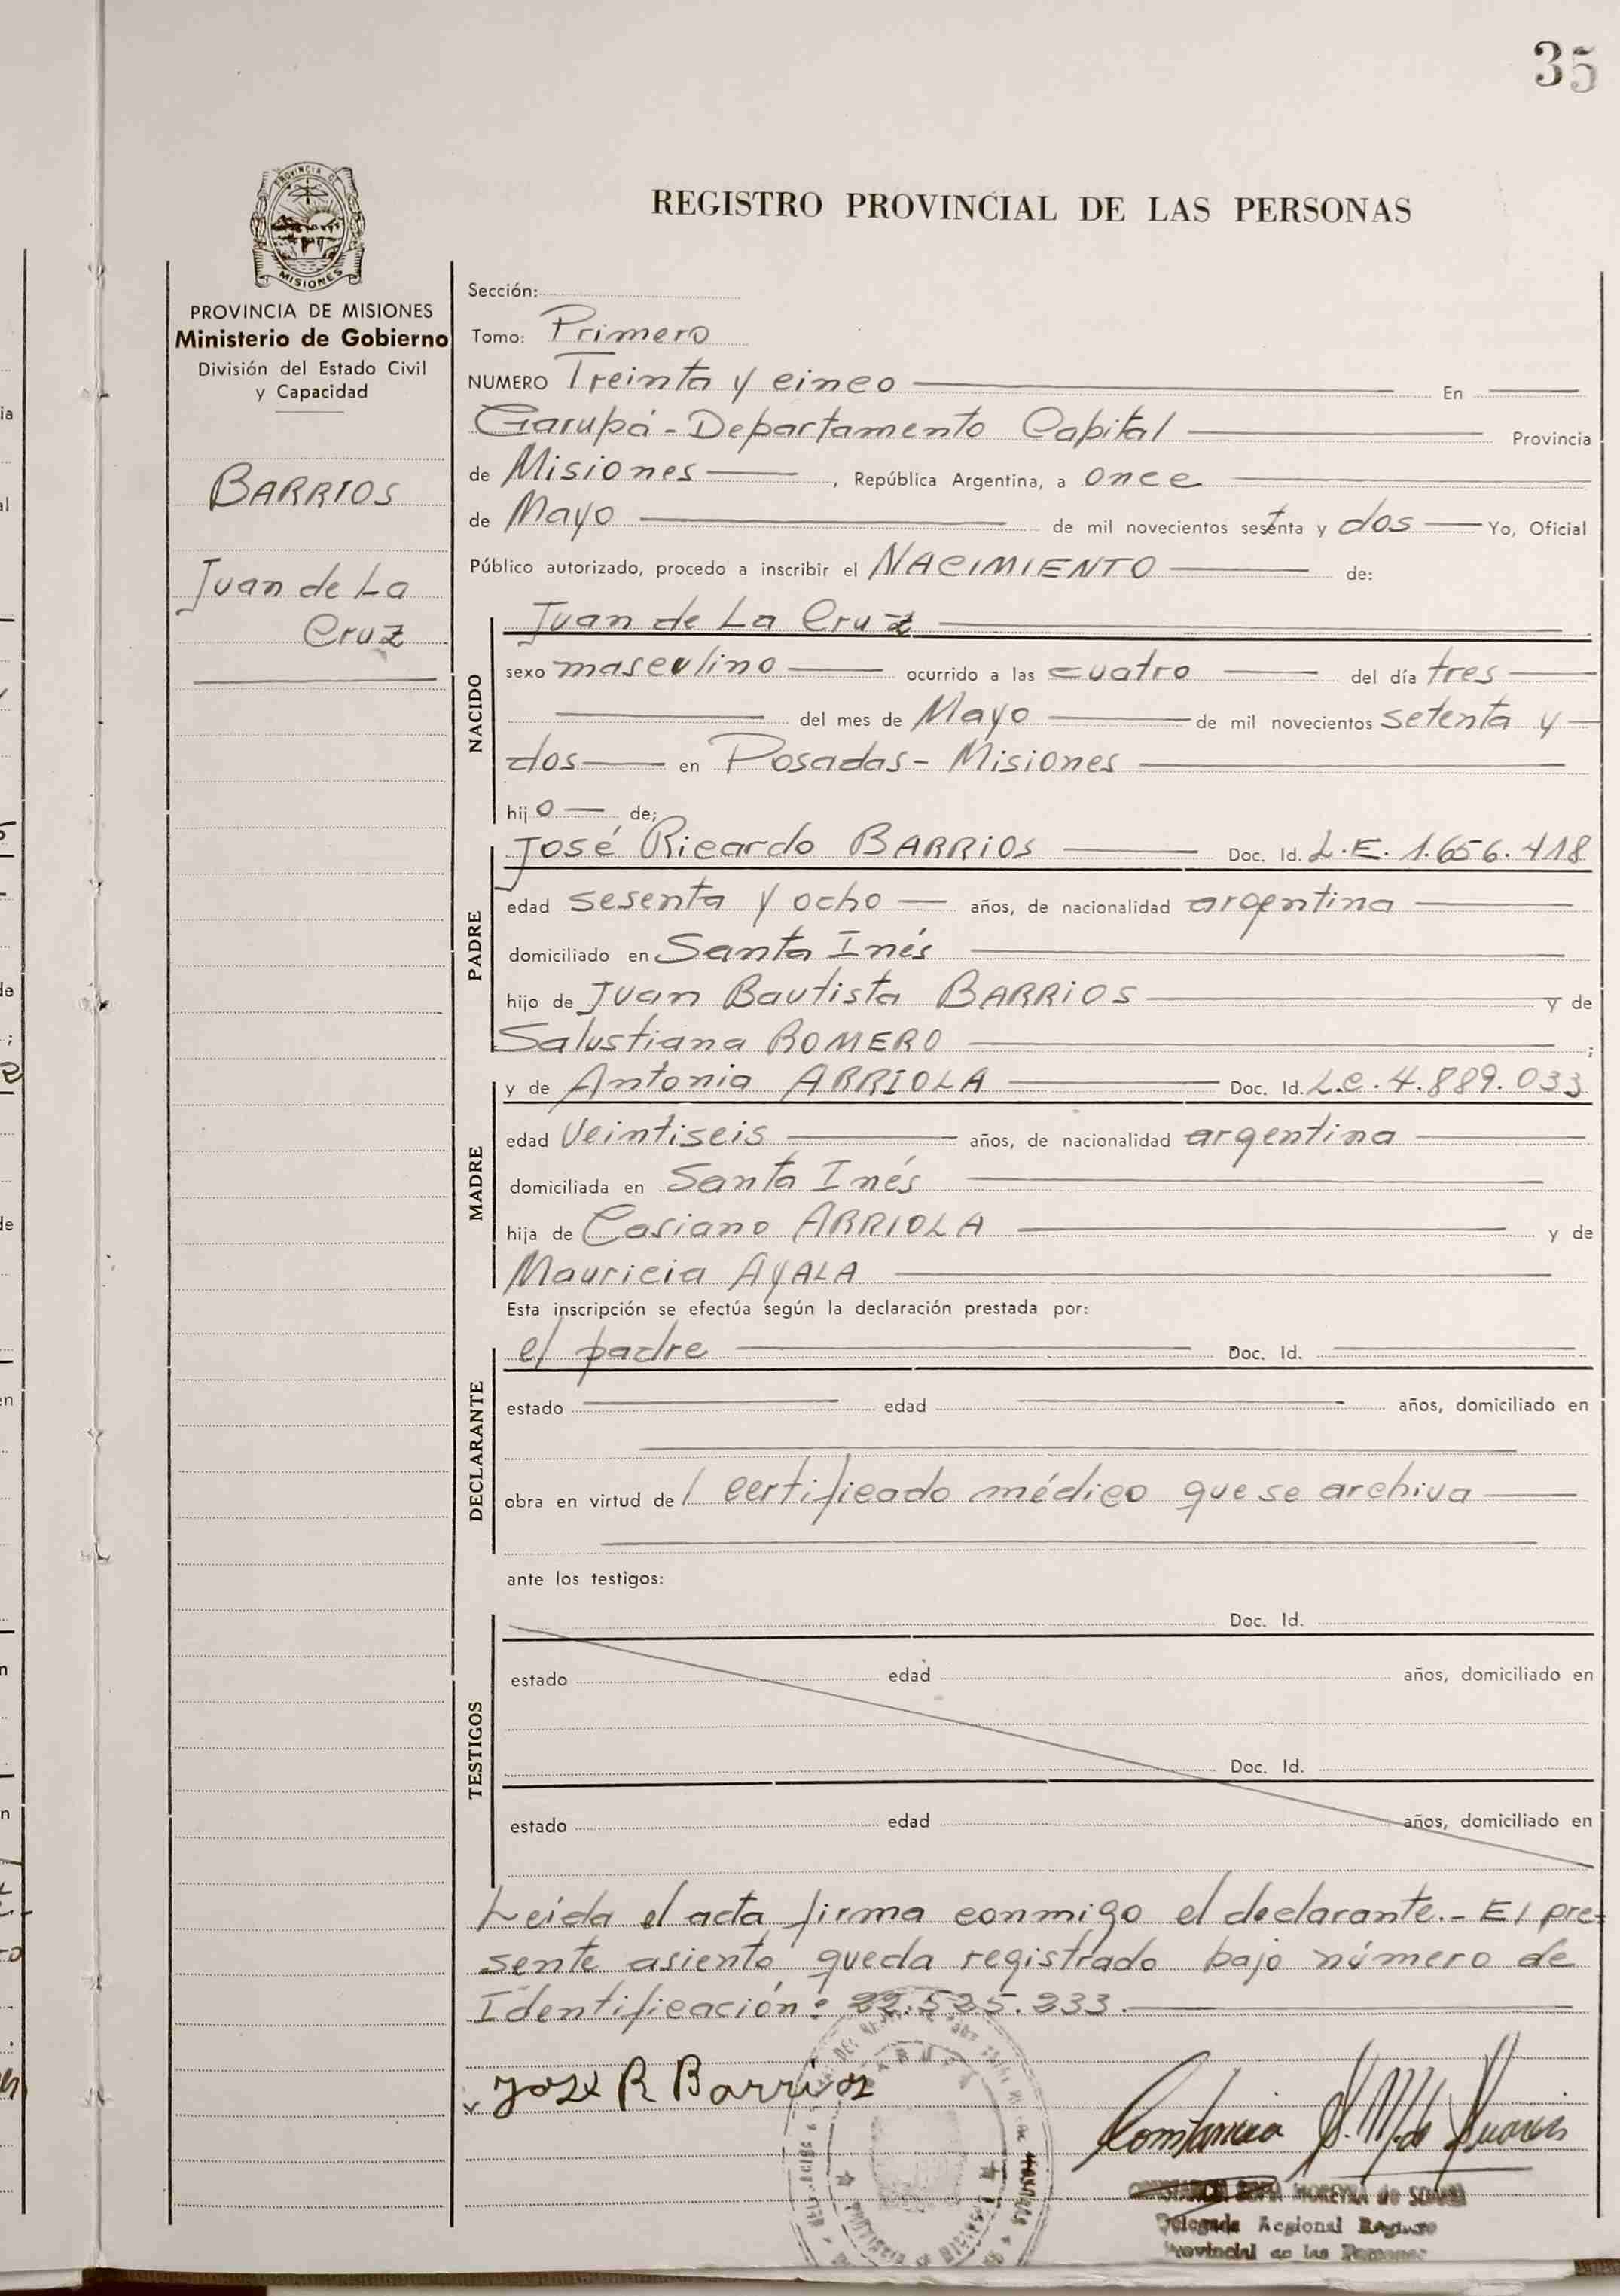 35
PROVINCIA DE
MISIONES
REGISTRO PROVINCIAL DE LAS PERSONAS
PROVINCIA DE MISIONES
Ministerio de Gobierno
División del Estado Civil
y Capacidad
BARRIOS
Juan de La
Cruz
Sección:
Tomo: Primero
NUMERO Treinta y cinco En
Garupá - Departamento Capital Provincia
de Misiones , República Argentina, a once
de Mayo de mil novecientos setenta y dos Yo, Oficial
Público autorizado, procedo a inscribir el NACIMIENTO de:
NACIDO
Juan de La Cruz
sexo masculino ocurrido a las cuatro del día tres
del mes de Mayo de mil novecientos setenta y
dos en Posadas - Misiones
hijo de;
PADRE
José Ricardo BARRIOS Doc. Id. L.E. 1.656.418
edad sesenta y ocho años, de nacionalidad argentina
domiciliado en Santa Inés
hijo de Juan Bautista BARRIOS y de
Salustiana ROMERO ;
MADRE
y de Antonia ARRIOLA Doc. Id. L.C. 4.889.033
edad Veintiseis años, de nacionalidad argentina
domiciliada en Santa Inés
hija de Casiano ARRIOLA y de
Mauricia AYALA
Esta inscripción se efectúa según la declaración prestada por:
DECLARANTE
el padre Doc. Id.
estado edad años, domiciliado en
obra en virtud de 1 certificado médico que se archiva
ante los testigos:
TESTIGOS
Doc. Id.
estado edad años, domiciliado en
Doc. Id.
estado edad años, domiciliado en
Leida el acta firma conmigo el declarante.- El pre-
sente asiento queda registrado bajo número de
Identificación: 22.525.233.
José R Barrios
Constancia S. M. de Suarez
MOREYRA de
Delegada Regional Registro
Provincial de las Personas